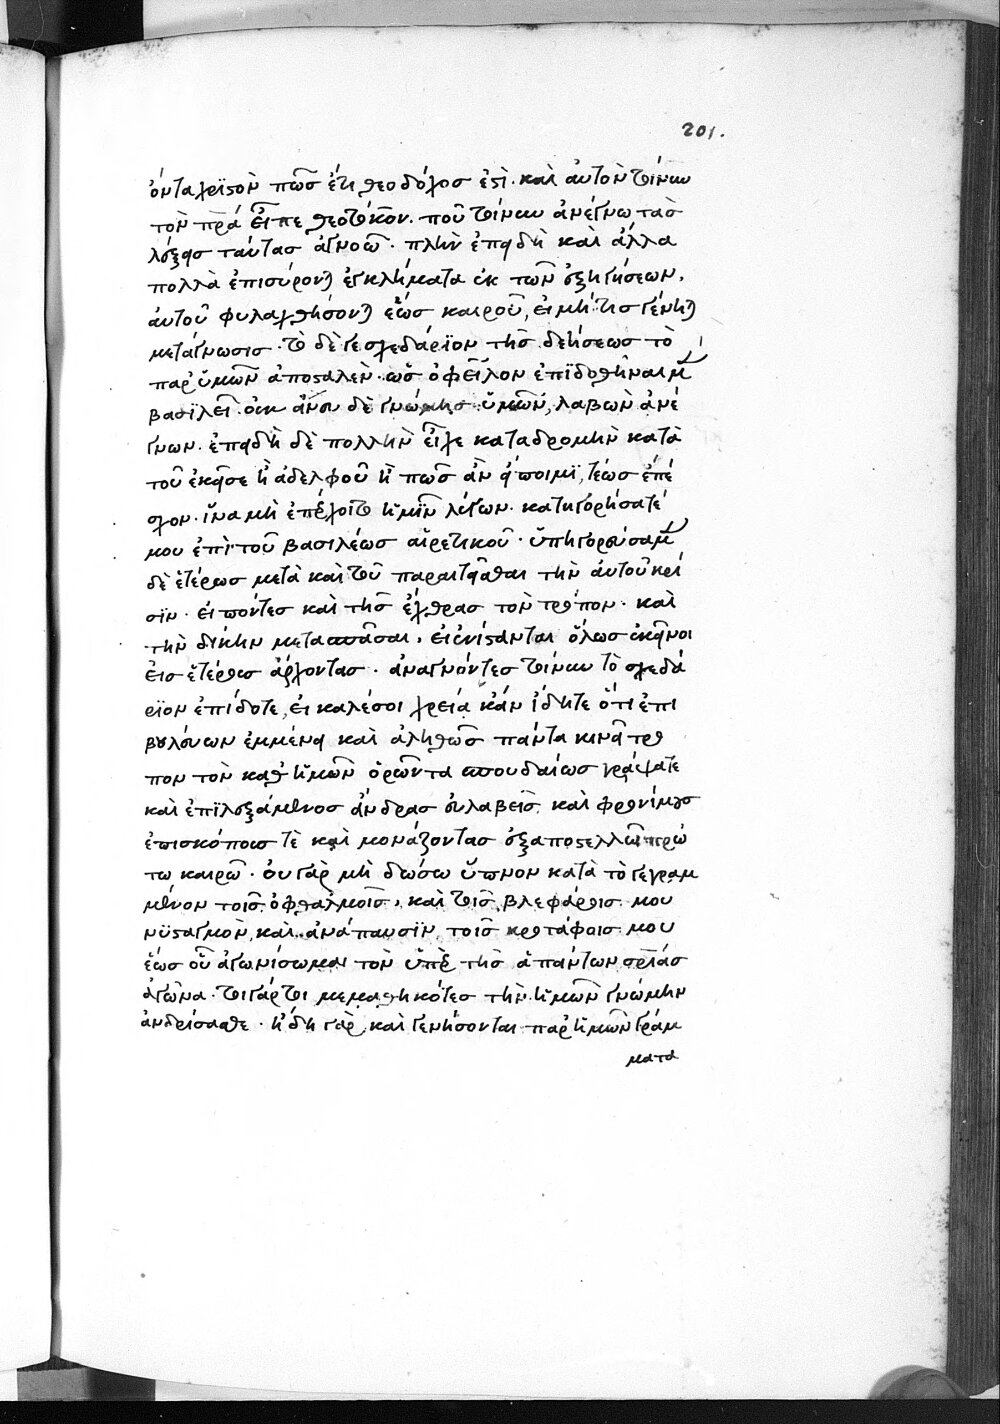 201.
ὄντα χριστὸν πῶς ἔτι θεολόγος ἐστὶ. καὶ αὐτὸν τίνυν
τὸν πρα εἶπε θεοτόκον. ποῦ τίνυν ἀνέγνω τὰς
λέξεις ταύτας ἀγνοῶ. πλὴν ἐπειδὴ καὶ ἄλλα
πολλὰ ἐπισύρονται ἐγκλήματα ἐκ τῶν ἐξηγήσεων.
αὐτοῦ φυλαχθήσονται ἕως καιροῦ, εἰ μή τις γένηται
μετάγνωσις. τὸ δέ γε σχεδάριον τῆς δεήσεως τὸ
παρ' ὑμῶν ἀποσταλὲν ὡς ὀφεῖλον ἐπιδοθῆναι μὲν
βασιλεῖ. οὐκ ἄνευ δὲ γνώμης ὑμῶν, λαβὼν ἀνέ
γνων. ἐπειδὴ δὲ πολλὴν εἶχε καταδρομὴν κατὰ
τοῦ ἐκεῖσε ἢ ἀδελφοῦ ἢ πῶς ἂν εἴποιμι, τέως ἐπέ
σχον. ἵνα μὴ ἐπέλθοιτο ἡμῖν λέγων. κατηγορήσατέ
μου ἐπὶ τοῦ βασιλέως αἱρετικοῦ. ὑπηγορεύσαμεν
δὲ ἑτέρως μετὰ καὶ τοῦ παραιτεῖσθαι τὴν αὐτοῦ κρί
σιν. εἰπόντες καὶ τῆς ἔχθρας τὸν τρόπον. καὶ
τὴν δίκην μετασπᾶσαι. εἰ ἐνίσανται ὅλως ἐκεῖνοι
εἰς ἑτέρους ἄρχοντας. ἀναγνόντες τίνυν τὸ σχεδά
ριον ἐπίδοτε, εἰ καλέσοι χρεία κἂν ἴδητε ὅτι ἐπι
βουλεύων ἐμμένει καὶ ἀληθῶς πάντα κινεῖ τρό
πον τὸν καθ' ἡμῶν ὁρῶντα σπουδαίως γράψατε
καὶ ἐπιλεξάμενος ἄνδρας εὐλαβεῖς καὶ φρονίμους
ἐπισκόπους τὲ καὶ μονάζοντας ἐξαποστελλῶ πρώ
τω καιρῶ. οὐ γὰρ μὴ δώσω ὕπνον κατὰ τὸ γεγραμ
μένον τοῖς ὀφθαλμοῖς, καὶ τοῖς βλεφάροις μου
νυσταγμὸν, καὶ ἀνάπαυσιν τοῖς κροτάφοις μου
ἕως οὗ ἀγωνίσωμαι τὸν ὑπὲρ τῆς ἁπάντων σρίας
ἀγῶνα. τιγάρτοι μεμαθηκότες τὴν ἡμῶν γνώμην
ἀνδρίσασθε. ἤδη γὰρ καὶ γενήσονται παρ' ἡμῶν γράμ
ματα